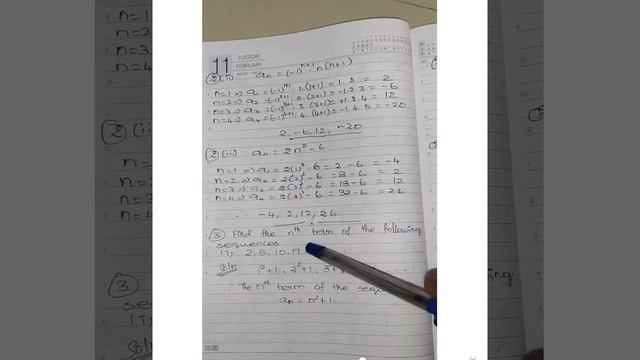 11
TUESDAY
FEBRUARY
② (ii) aₙ = (-1)ⁿ⁺¹ n(n+1)
n=1 ⇒ a₁ = (-1)¹⁺¹ . 1.(1+1) = 1.2 = 2
n=2 ⇒ a₂ = (-1)²⁺¹ . 2.(2+1) = -1.2.3 = -6
n=3 ⇒ a₃ = (-1)³⁺¹ . 3.(3+1) = +1.3.4 = 12
n=4 ⇒ a₄ = (-1)⁴⁺¹ . 4.(4+1) = -1.4.5 = -20
2, -6, 12, -20.
② (iii) aₙ = 2n² - 6
n=1 ⇒ a₁ = 2(1)² - 6 = 2 - 6 = -4
n=2 ⇒ a₂ = 2(2)² - 6 = 8 - 6 = 2
n=3 ⇒ a₃ = 2(3)² - 6 = 18 - 6 = 12
n=4 ⇒ a₄ = 2(4)² - 6 = 32 - 6 = 26
∴ -4, 2, 12, 26
③ Find the nᵗʰ term of the following
sequences
(i) 2, 5, 10, 17
Soln 1²+1, 2²+1, 3²+1
∴ The nᵗʰ term of the
aₙ = n²+1.
2020